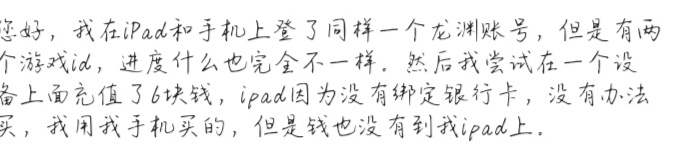 您好，我在iPad和手机上登了同样一个龙渊账号，但是有两
个游戏id，进度什么也完全不一样。然后我尝试在一个设
备上面充值了6块钱，ipad因为没有绑定银行卡，没有办法
买，我用我手机买的，但是钱也没有到我ipad上。